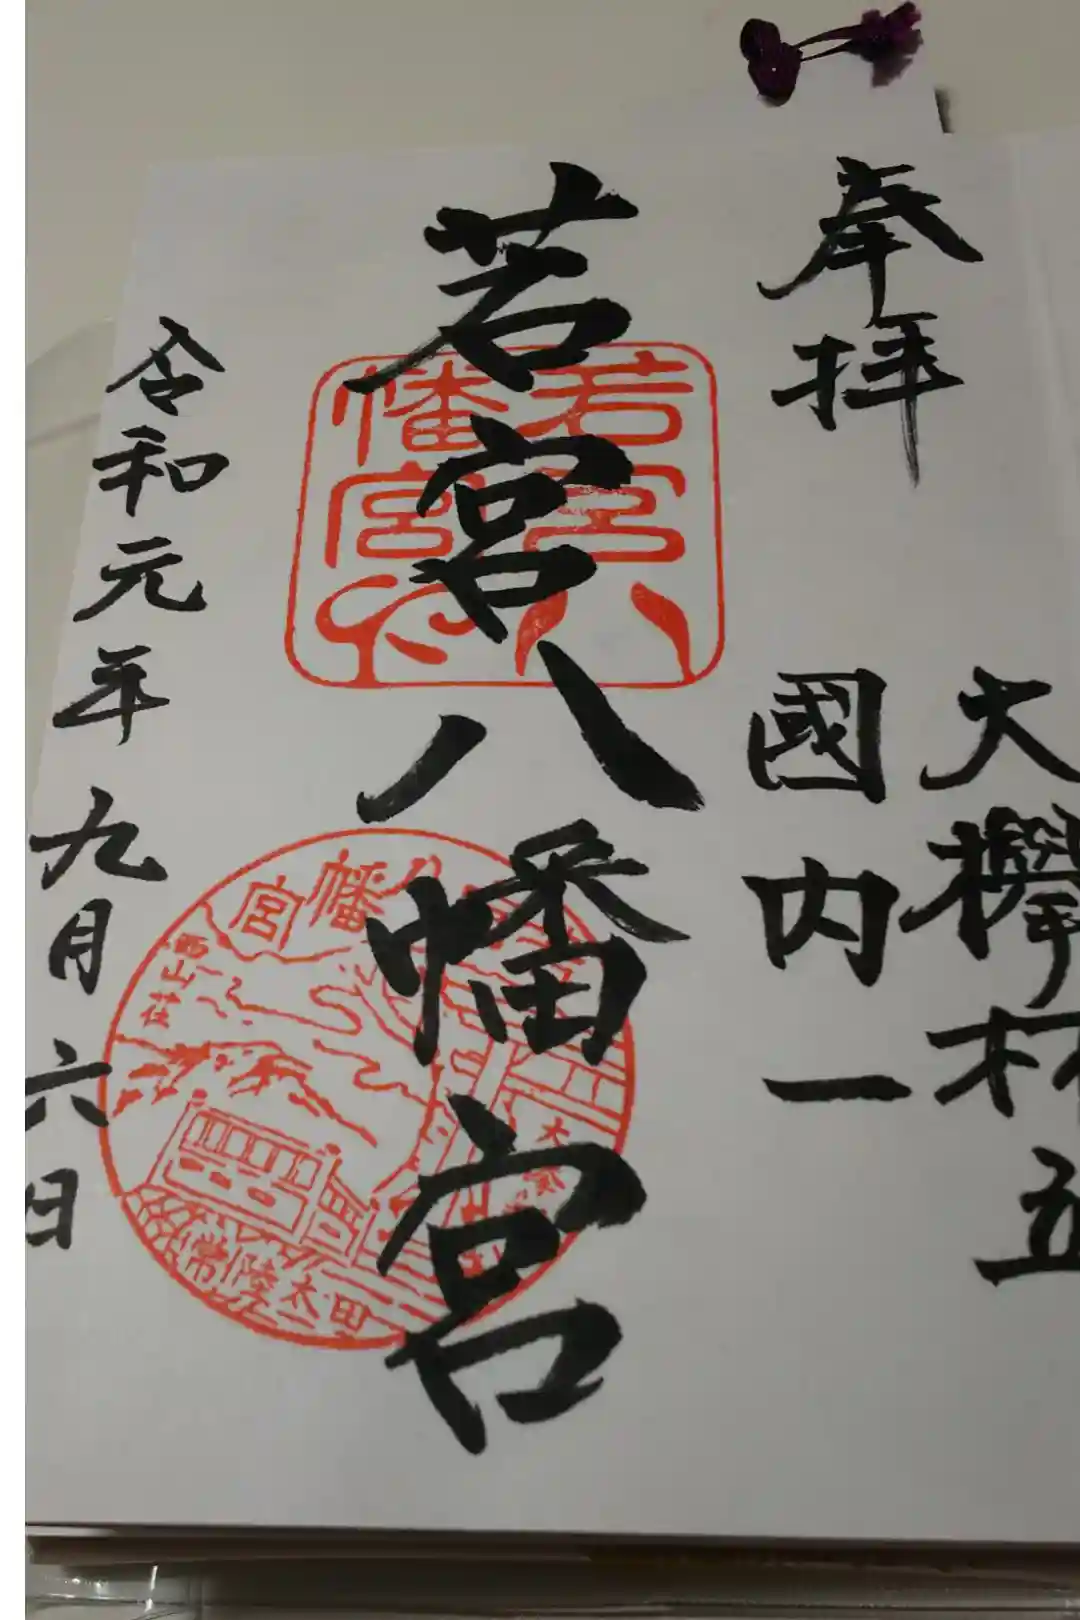 奉拝
大欅杯五
國内一
若宮八幡宮
若宮八
幡宮
八幡宮
西山荘
大欅
常陸太田
令和元年九月六日